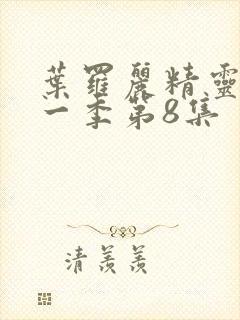 葉羅麗精靈
一季第8集
清羨羨